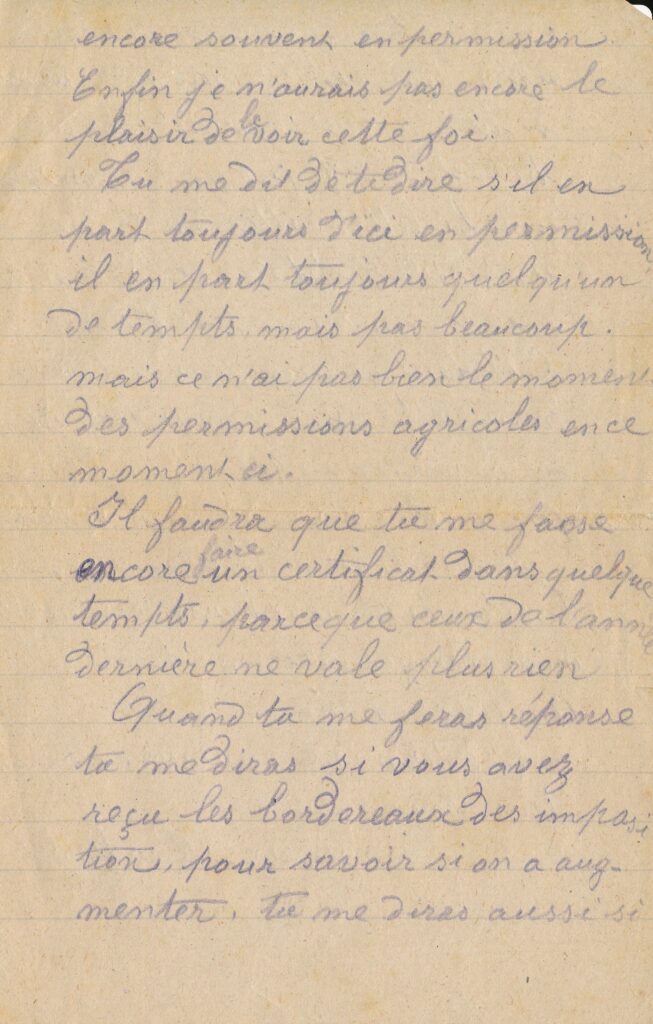 encore souvent en permission.
Enfin je n'aurais pas encore le
plaisir de le voir cette foi.
Tu me dit de te dire s'il en
part toujours d'ici en permission,
il en part toujours quelqu'un
de tempts, mais pas beaucoup.
mais ce n'ai pas bien le moment
des permissions agricoles en ce
moment ci.
Il faudra que tu me fasse
encore faire un certificat dans quelque
tempts, parceque ceux de l'année
dernière ne vale plus rien
Quand tu me feras réponse
tu me diras si vous avez
reçu les bordereaux des imposi
tion, pour savoir si on a aug-
menter, tu me diras aussi si